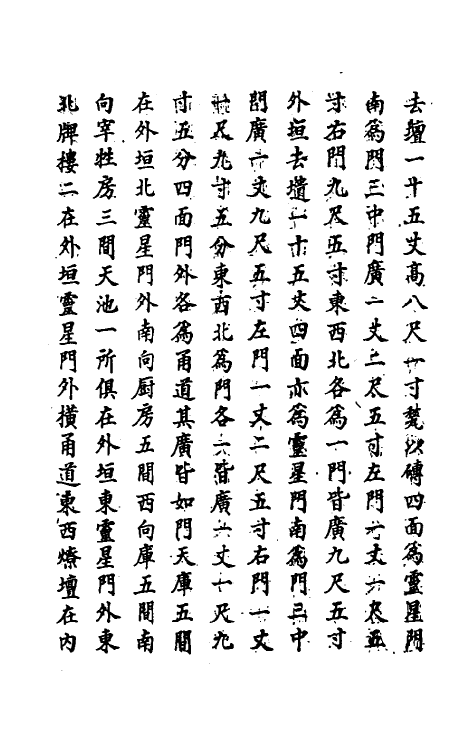 去壇一十五丈高八尺一寸甃以磚四面爲靈星門
南爲門三中門廣一丈二尺五寸左門一丈一尺五
寸右門九尺五寸東西北各爲一門皆廣九尺五寸
外垣去壝一十五丈四面亦爲靈星門南爲門三中
門廣一丈九尺五寸左門一丈二尺五寸右門一丈
一尺九寸五分東西北爲門各一皆廣一丈一尺九
寸五分四面門外各爲甬道其廣皆如門天庫五間
在外垣北靈星門外南向厨房五間西向庫五間南
向宰牲房三間天池一所俱在外垣東靈星門外東
北牌樓二在外垣靈星門外橫甬道東西燎壇在内